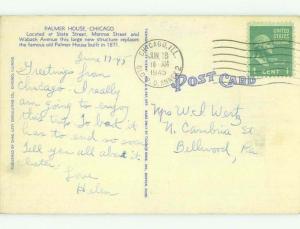 PALMER HOUSE - CHICAGO
Located at State Street, Monroe Street and
Wabash Avenue this large new structure replaces
the famous old Palmer House built in 1871.
June 17-45
Greetings from
Chicago. I really
am going to enjoy
this trip. Too bad it
has to end so soon.
Tell you all about it
later.
Love
Helen
CHICAGO, ILL.
JUN 18
10 AM
1945
POST CARD
1 CENT 1
Mrs W. J. Wertz
N. Cambria St.
Bellwood, Pa